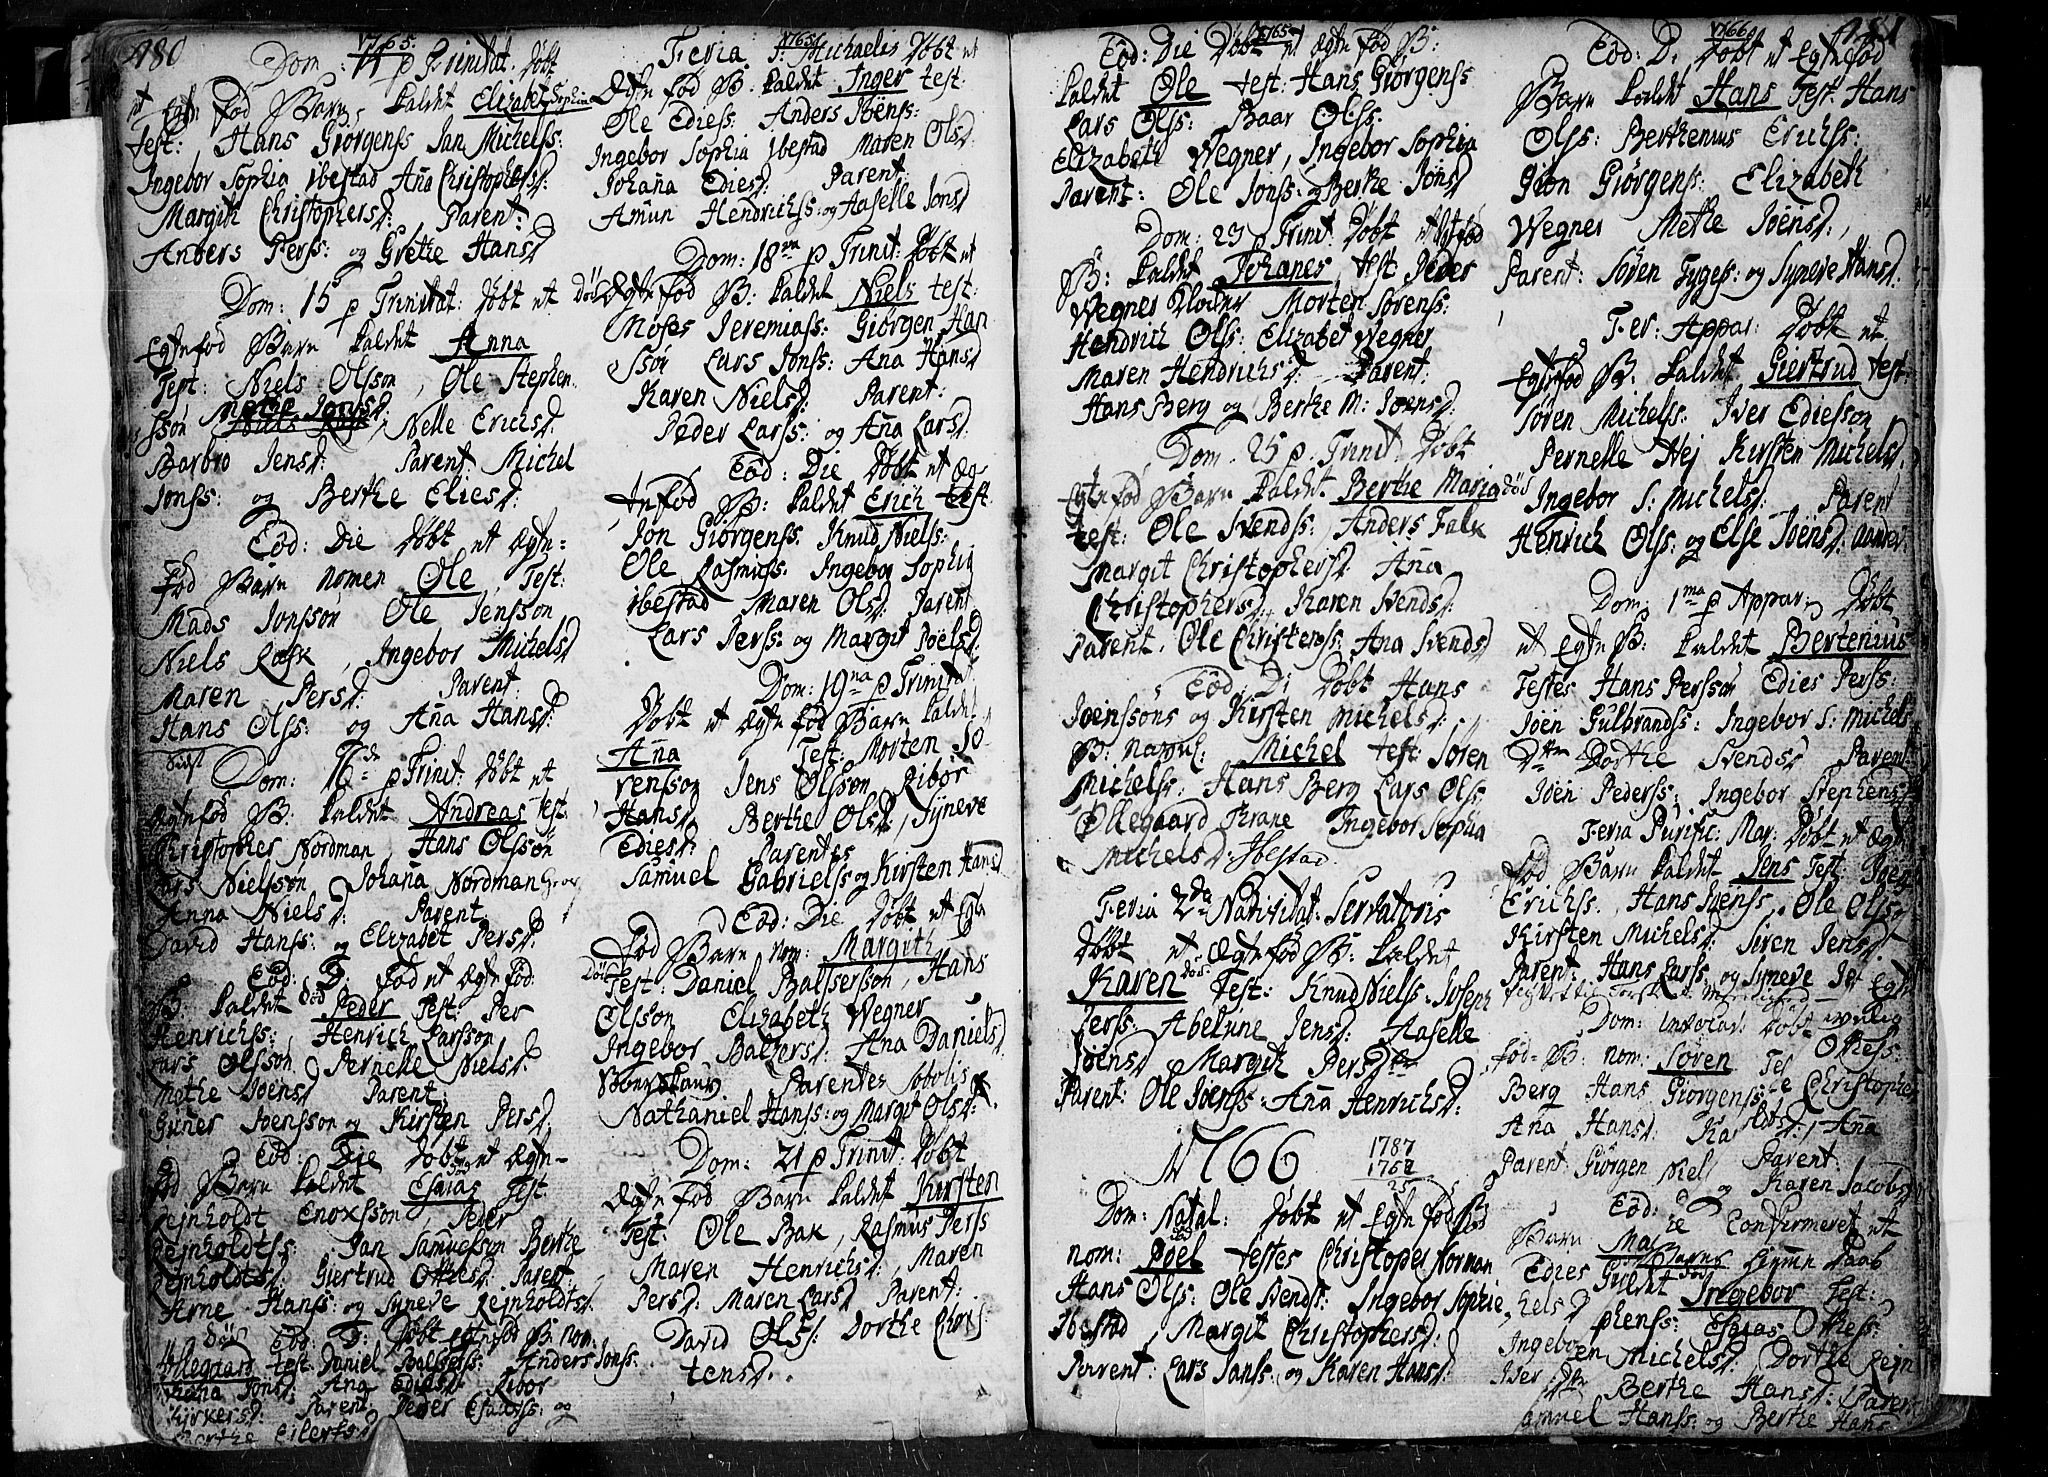 180
1765.
Dom: 11 p Trinitat. Døbt
et Egte fød Barn kaldet Elizabet Sophia
Test: Hans Giørgenss Jan Michelss:
Ingebor Sophia Ibestad Aña Christophersd:
Margith Christophersd: Parent:
Anders Perss: og Grethe Hansd
Dom: 15 p Trinitat: Døbt et
Egte fød Barn kaldet Anna
Test: Niels Olsson, Ole Stephen
ssøn Methe Jonsd, Nelle Erichsd.
Barbro Jensd: Parent: Michel
Jonss: og Berthe Eliesd:
Eod: Die Døbt et Ægte
fød Barn nomen Ole, Test:
Mads Jonsson Ole Jensson
Niels Rask, Ingebor Michelsd
Maren Persd: Parent:
Hans Olss: og Aña Hansd:
Dom: 16de p Trinit: Døbt et
Ægte fød B: kaldet Andreas Test.
Christopher Nordman, Hans Olssøn
Lars Nielsson Johaña Nordman
Anna Nielsd: Parent
David Hanss: og Elizabet Persd:
Eod: D: fød et Ægte fød
B: kaldet død Peder Test: Per
Henrichss: Henrich Larsson
Lars Olsson Pernelle Nielsd.
Methe Joensd Parent:
Guner Joensson og Kirsten Persd
Eod: Die Døbt et Ægte
fød Barn kaldet Esaias Test.
Rejnholdt Enoxsson, Peder
Rejnholdtss: Jan Samuelsson Berthe
Rejnholdtsd: Giertrud Ottesd: Parent:
Arne Hanss: og Syneve Rejnholdtsd.
død Eod: D: Døbt Egte fød B. nom.
Ollegaard test: Daniel Baltserss: Anders Jonss:
Jonsd: Ana Ediesd Ribor
Parent Peder Esaiss: og
Eilertsd
1765
Feria S: Michaelis Døbt et
Ægte fød B: kaldet Inger test:
Ole Ediess: Anders Joenss:
Ingebor Sophia Ibestad Maren Olsd:
Johaña Ediesd: Parent:
Amun Hendrichss: og Aaselle Jonsd
Dom: 18na p Trinit: Døbt et
død Ægte fød B: kaldet Niels test:
Moses Jeremiass: Giørgen Han
ssøn Lars Jonss: Ana Hansd
Karen Nielsd: Parent:
Peder Larss: og Aña Larsd.
Eod: Die Døbt et Æg-
te fød B: kaldet Erich test.
Jon Giørgenss. Knud Nielss:
Ole Rasmuss: Ingebor Sophia
Ibestad Maren Olsd: Parent
Lars Perss: og Margit Poelsd:
Dom: 19na p Trinitat
Døbt et Ægte fød Barn kaldet
Aña Test: Morten So-
renssøn Jens Olssøn Ribor
Hansd. Berthe Olsd, Syneve
Ediesd: Parentes
Samuel Gabrielss og Kirsten Hansd
Eod: Die Døbt et Egte
fød Barn nom: Margith
død Test: Daniel Baltserssøn, Hans
Olsson Elizabeth Wegner
Ingebor Baltzersd: Ana Danielsd
Parentes Sobolis
Nathaniel Hanss: og Margit Olsd:
Dom: 21 p Trinit: Døbt
Ægte fød Barn kaldet Kirsten
Test: Ole Bak, Rasmus Perss
Maren Henrichsd, Maren
Persd: Maren Larsd Parent:
David Olss: Dorthe Chris
tensd.
1765
Eod: Die Døbt et Ægte fød B:
kaldet Ole test: Hans Giørgenss
Lars Olss: Baar Olss:
Elizabeth Wegner, Ingebor Sophia
Parent: Ole Jonss: og Berthe Jonsd
Dom: 23 p Trinit: Døbt et Egte fød
B: kaldet Johanes, test Peder
Wegner Klocker Morten Sørenss:
Hendrich Olss: Elizabet Wegner
Maren Hendrichsd: Parent:
Hans Berg og Berthe M: Joensd:
Dom: 25 p. Trinit: Døbt
Egte fød Barn kaldet. Berthe Maria død
test: Ole Svendss, Anders Falk
Margit Christophersd: Aña
Christophersd: Karen Svendsd:
Parent. Ole Christenss: Ana Svendsd
Eod. Di Døbt Hans
Joenssøns og Kirsten Michelsd:
B: Michel test: Søren
Michelss: Hans Berg Lars Olss
Ollegaard Krane Ingebor Sophia
Michelsd: Ibestad.
Feria 2da Nativitat: Servatoris
Døbt et Ægte fød B: kaldet
Karen død Test: Knud Nielss: Joseph
Perss: Abelune Jensd: Aaselle
Joensd Margith Persdtr
Parent: Ole Joenss: Aña Henrichsd:
1766
1787
1762
25
Dom: Natal: Døbt et Egte fød B:
nom: Poel testes Christopher Norman
Hans Olss: Ole Svendss: Ingebor Sophie
Ibestad, Margit Christophersd:
Parent: Lars Janss: og Karen Hansd:
181
1766
Eod: D: Døbt et Egte fød
Barn kaldet Hans Test: Hans
Olss: Berthenius Erichss:
Giøn Giørgenss: Elizabeth
Wegner Methe Joensd:,
Parent: Søren Tygess: og Syneve Hansd.
Fer: Appar: Døbt et
Egte fød B: kaldet Giertrud test:
Søren Michelss: Iver Ediesson
Pernelle Hej Kirsten Michelsd.
Ingebor S: Michelsd: Parent
Henrich Olss: og Else Joensd:
Dom: 1ma p Appar: Døbt
et Egte B: kaldet Bertenius
Testes Hans Perssøn Edies Perss:
Joen Gulbrandss: Ingebor S: Michels
Dtter Dorthe Svendsd Parent:
Joen Pederss: Ingebor Stephensd
Feria Purific: Mar: Døbt et Ægte
fød Barn kaldet Jens Test Joen
Erichss, Hans Joenss, Ole Olss
Kirsten Michelsd: Siren Jensd:
Parent: Hans Larss og Syneve
Dom: Invocav: Døbt
fød B: nom: Søren Tes Ottess:
Berg Hans Giørgenss: Christopher
Ana Hansd: Ka Aña
Parent: Giørgen Niel Parent:
og Karen Jacobsd
Eod: Confirmeret et
Barn Ma Barns hjemme Daab
Edies kaldt død Ingebor Test:
phenss: Esaias Ottess:
Ingebor en Michelsd: Dorthe Rejn
Iver Berthe Hansd: Parent
Samuel Hanss: og Berthe Hans